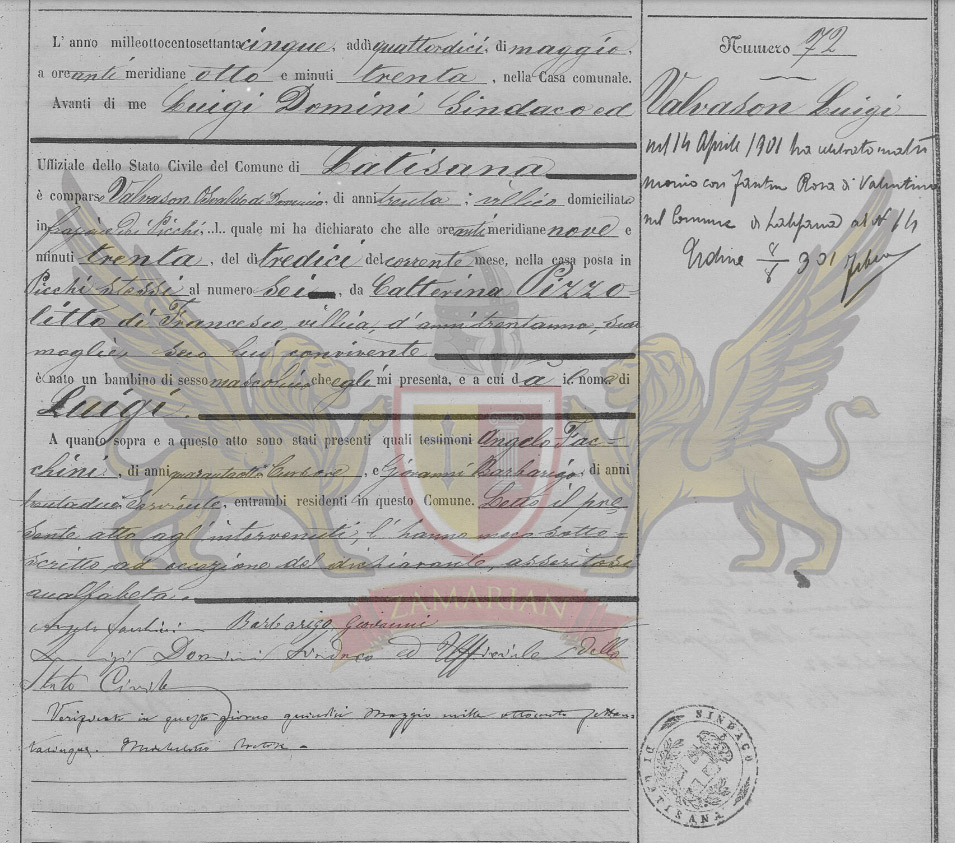 L' anno milleottocentosettantacinque, addì quattordici di maggio,
a ore anti meridiane otto e minuti trenta, nella Casa comunale.
Avanti di me Luigi Domini Sindaco ed
Uffiziale dello Stato Civile del Comune di Latisana
è comparso Valvason Osvaldo di, di anni trenta, villico domiciliato
in frazione dei Picchi, ..l.. quale mi ha dichiarato che alle ore anti meridiane nove e
minuti trenta, del dì tredici del corrente mese, nella casa posta in
Picchi stessi al numero sei, da Catterina Pizzo-
litto di Francesco, villica, d'anni trentanno, sua
moglie, seco lui convivente
è nato un bambino di sesso mascolino che egli mi presenta, e a cui dà il nome di
Luigi.
A quanto sopra e a questo atto sono stati presenti quali testimoni Angelo Fac-
chini, di anni quarantotto, e Giovanni Barbarigo, di anni
trentadue, entrambi residenti in questo Comune. Letto il pre-
sente atto agl' intervenuti, l' hanno meco sotto-
scritto, ad eccezione del dichiarante, asseritosi
analfabeta.
Angelo Facchini Barbarigo Giovanni
Luigi Domini Sindaco ed Uffiziale dello
Stato Civile
Verificato in questo giorno quindici Maggio mille ottocento settan-
tacinque.
Numero 72
Valvason Luigi
nel 14 Aprile 1901 ha celebrato matri
monio con Fantin Rosa di Valentino
nel Comune di Latisana at N 14
Udine 8/8 901
ZAMARIAN
SINDACO
DI LATISANA